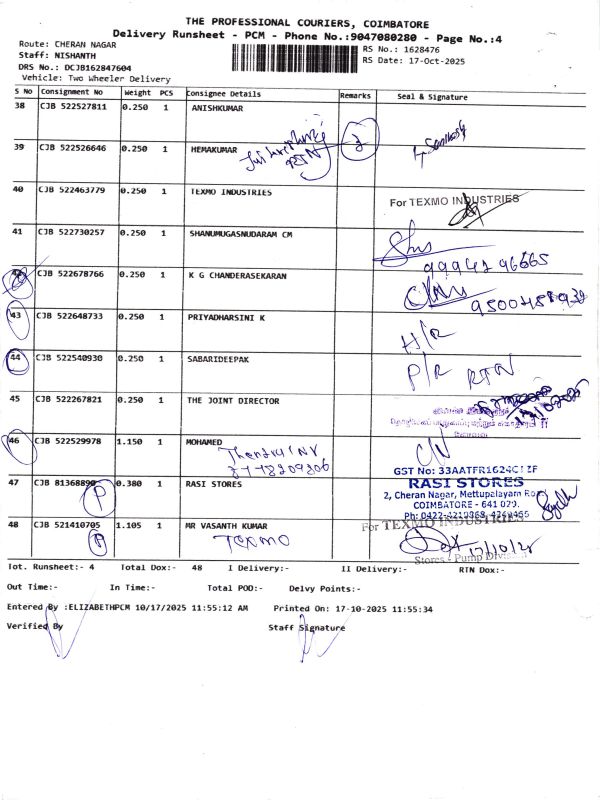 THE PROFESSIONAL COURIERS, COIMBATORE
Delivery Runsheet - PCM - Phone No.:9047080280 - Page No.:4
Route: CHERAN NAGAR
RS No.: 1628476
Staff: NISHANTH
RS Date: 17-Oct-2025
DRS No.: DCJB162847604
Vehicle: Two Wheeler Delivery
S No Consignment No Weight PCS Consignee Details Remarks Seal & Signature
38 CJB 522527811 0.250 1 ANISHKUMAR
39 CJB 522526646 0.250 1 HEMAKUMAR
RTN
40 CJB 522463779 0.250 1 TEXMO INDUSTRIES
For TEXMO INDUSTRIES
41 CJB 522730257 0.250 1 SHANUMUGASNUDARAM CM
9994296665
42 CJB 522678766 0.250 1 K G CHANDERASEKARAN
43 CJB 522648733 0.250 1 PRIYADHARSINI K
H/R
44 CJB 522540930 0.250 1 SABARIDEEPAK
P/R RTN
45 CJB 522267821 0.250 1 THE JOINT DIRECTOR
46 CJB 522529978 1.150 1 MOHAMED
C/N
GST No: 33AATFR1624C1ZF
47 CJB 81368890 0.380 1 RASI STORES
P
RASI STORES
2, Cheran Nagar, Mettupalayam Road
COIMBATORE - 641 029.
48 CJB 521410705 1.105 1 MR VASANTH KUMAR
P
TEXMO
For TEXMO INDUSTRIES
17/10/25
Stores - Pump Division
Tot. Runsheet:- 4 Total Dox:- 48 I Delivery:- II Delivery:- RTN Dox:-
Out Time:- In Time:- Total POD:- Delvy Points:-
Entered By :ELIZABETHPCM 10/17/2025 11:55:12 AM Printed On: 17-10-2025 11:55:34
Verified By Staff Signature